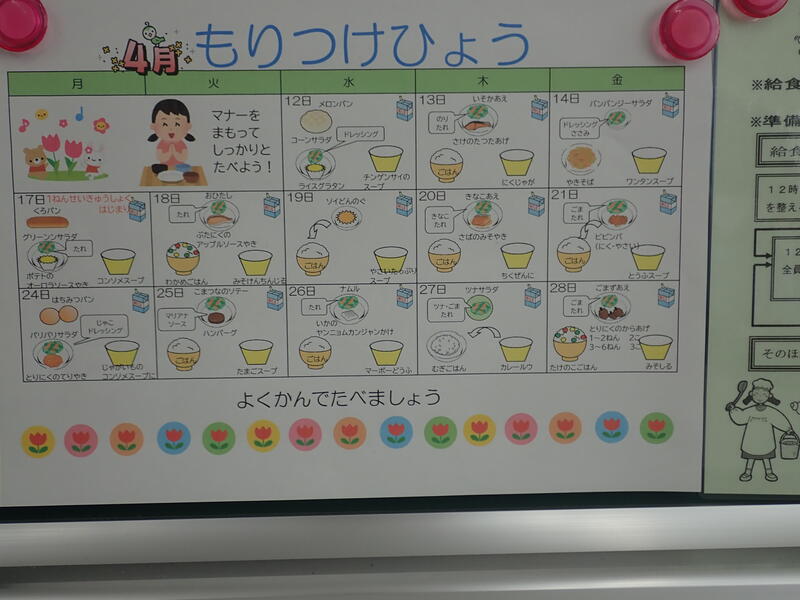 4月 もりつけひょう
月 火 水 木 金
マナーを
まもって
しっかりと
たべよう！
12日 メロンパン
コーンサラダ
ドレッシング
ライスグラタン
チンゲンサイの
スープ
13日 いそかあえ
のり
たれ
さけのたつたあげ
ごはん
にくじゃが
14日 バンバンジーサラダ
ドレッシング
ささみ
やきそば
ワンタンスープ
17日 1ねんせいきゅうしょく
はじまり
くろパン
グリーンサラダ
たれ
ポテトの
オーロラソースやき
コンソメスープ
18日 おひたし
たれ
ぶたにくの
アップルソースやき
わかめごはん
みそけんちんじる
19日 ソイどんのぐ
ごはん
やさいたっぷり
スープ
20日 きなこあえ
きなこ
たれ
さばのみそやき
ごはん
ちくぜんに
21日
ごま
たれ
ビビンバ
(にく・やさい)
ごはん
とうふスープ
24日 はちみつパン
パリパリサラダ
じゃこ
ドレッシング
とりにくのてりやき
じゃがいもの
コンソメスープに
25日 こまつなのソテー
マリアナ
ソース
ハンバーグ
ごはん
たまごスープ
26日 ナムル
たれ
いかの
ヤンニョムカンジャンかけ
ごはん
マーボーどうふ
27日 ツナサラダ
ツナ・ごま
たれ
むぎごはん
カレールウ
28日 ごまずあえ
ごま
たれ
とりにくのからあげ
1～2ねん 2こ
3～6ねん 3こ
たけのこごはん
みそしる
よくかんでたべましょう
※給食
※準備
給食
12時
を整え
12
全員
そのほ